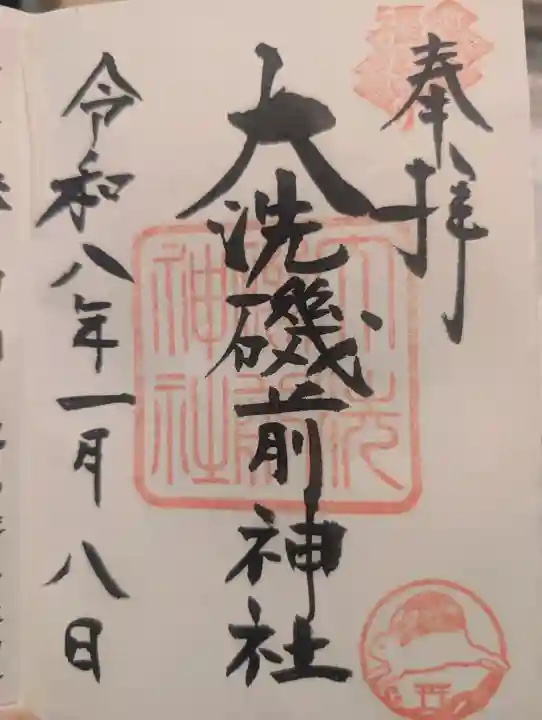 奉拝
大洗磯前神社
令和八年一月八日
大洗磯前神社